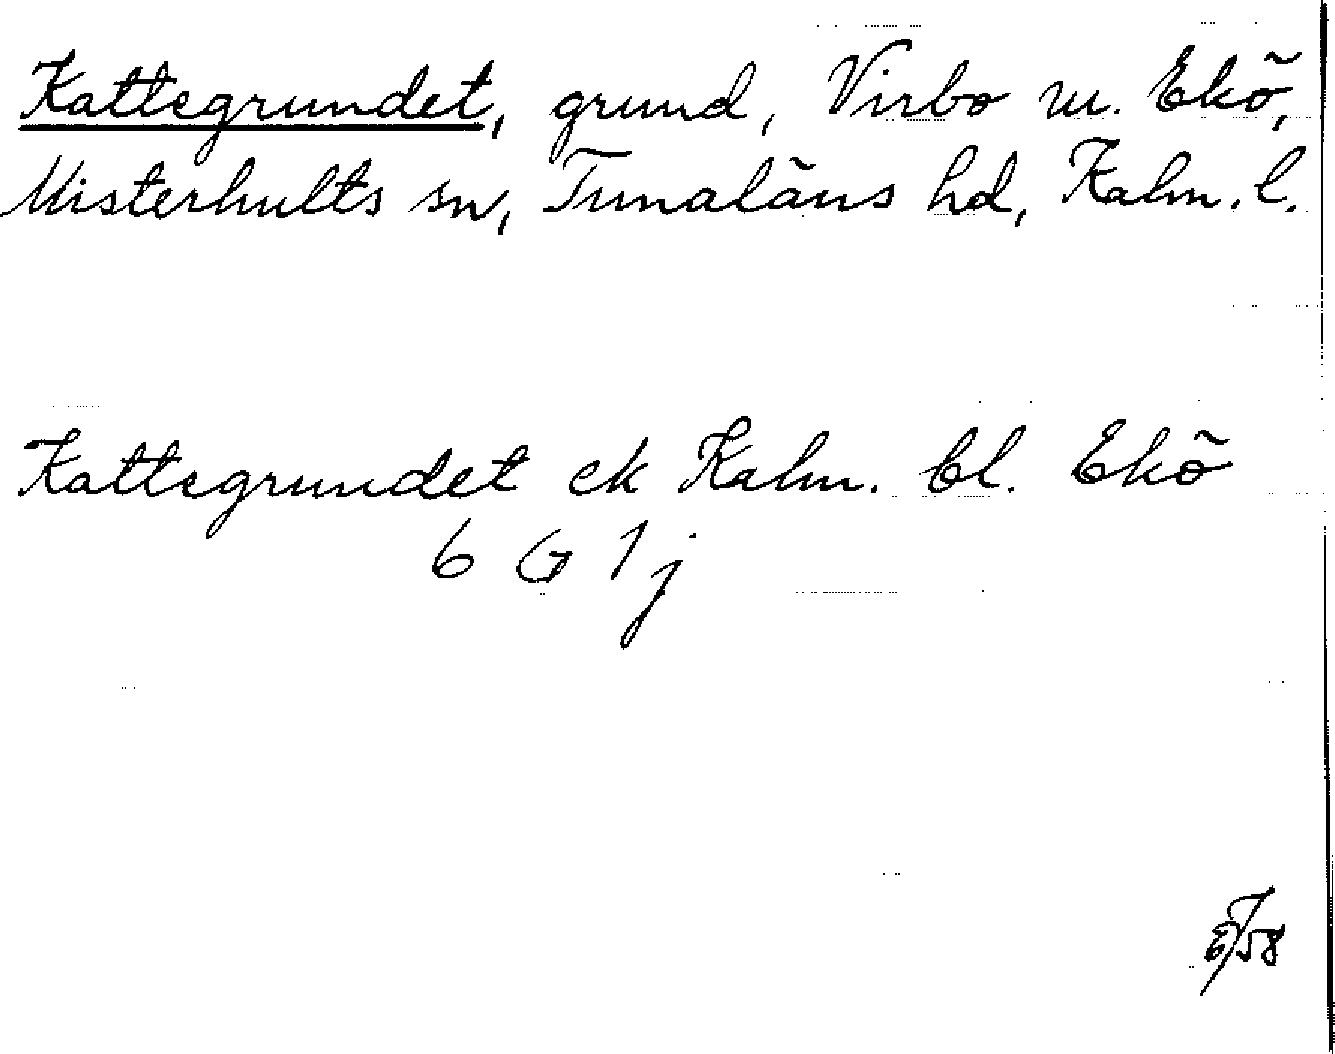 Kattegrundet, grund, Virbo m. Ekö,
Misterhults sn, Tunaläns hd, Kalm. l.
Kattegrundet ek Kalm. bl. Ekö
6 G 1 j